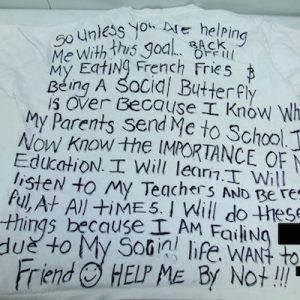 So Unless You Are helping
Me With this goal... BACK OFF!!!
My Eating French Fries $
Being A Social Butterfly
is Over Because I Know Wh
My Parents Send Me to School. I
Now Know the IMPORTANCE OF M
Education. I Will learn. I Will
listen to My Teachers AND Be Res
ful, At All times. I Will do these
things because I AM Failing
due to My Social life. WANT to
Friend HELP ME By Not!!!